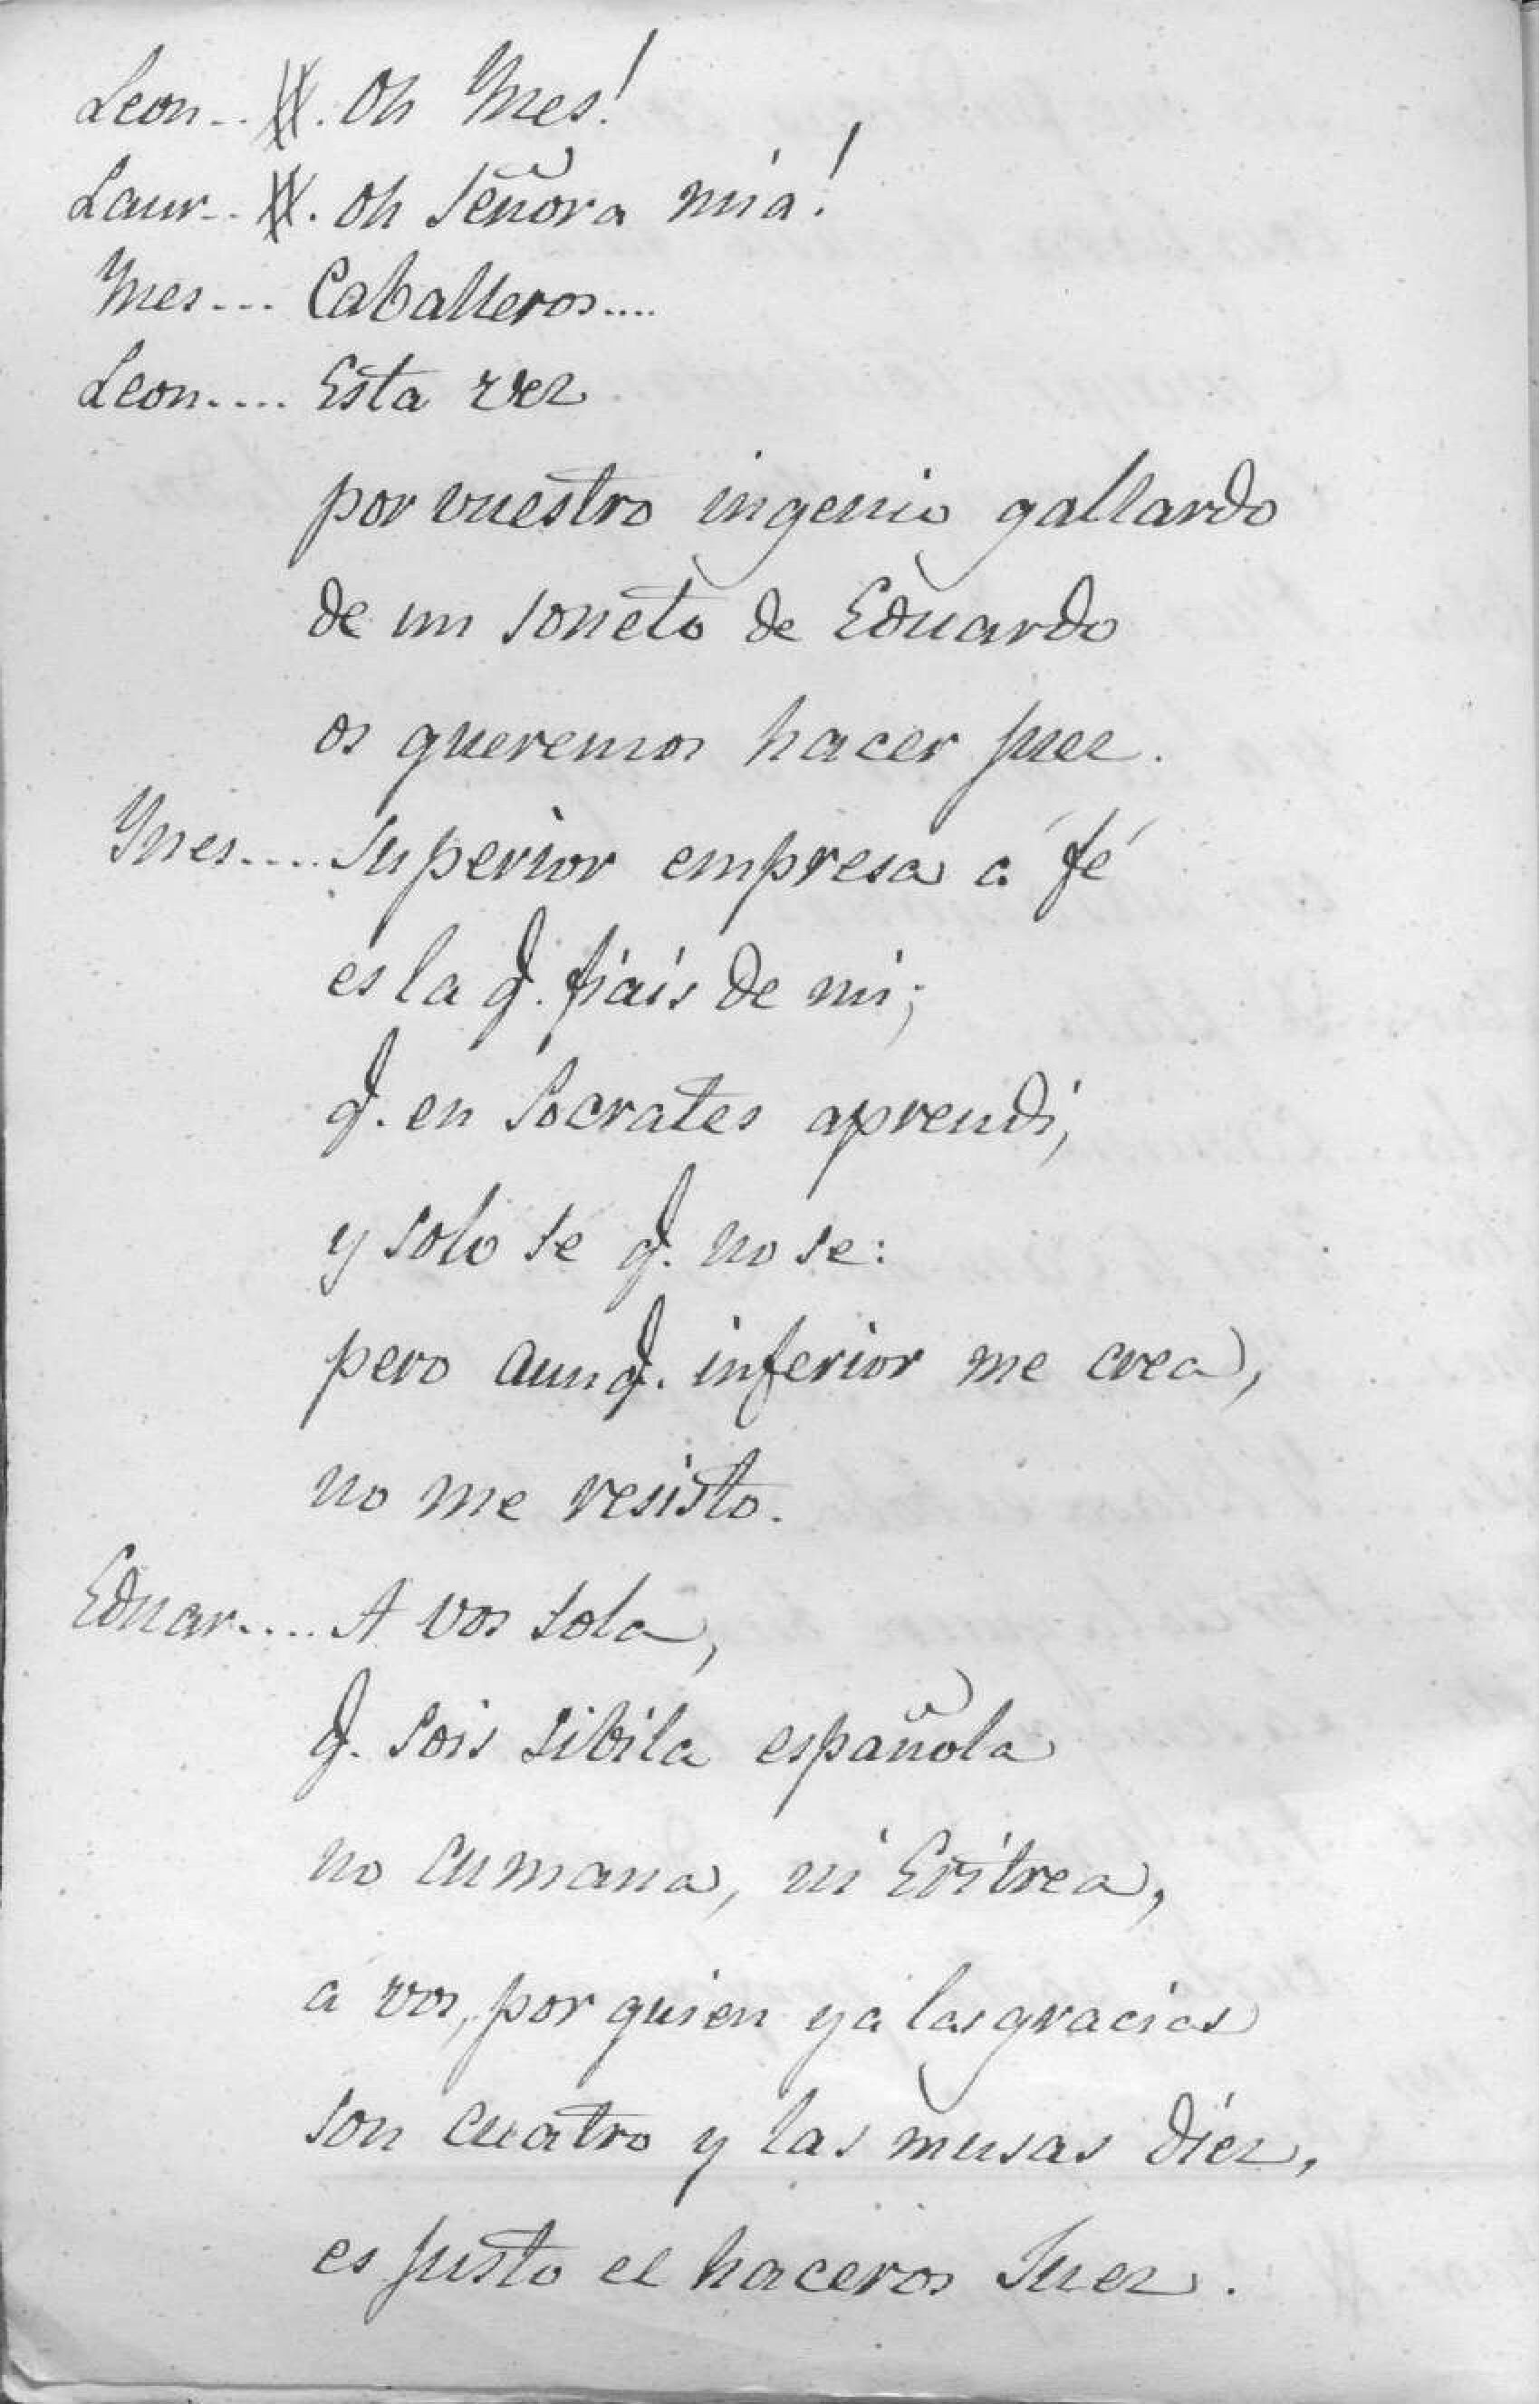 Leon.. Oh Ynes!
Laur.. Oh Señora mia!
Ynes... Caballeros....
Leon.... Esta vez
por vuestro ingenio gallardo
de un soneto de Eduardo
os queremos hacer juez.
Ynes.... Superior empresa á fé
es la q. fiais de mi;
q. en Socrates aprendi,
y solo se q. no se:
pero aunq. inferior me crea,
no me resisto.
Eduar.... A vos sola,
q. sois sibila española
no cumana, ni Eritrea,
á vos, por quien ya las gracias
son cuatro y las musas diez,
es justo el haceros Juez.